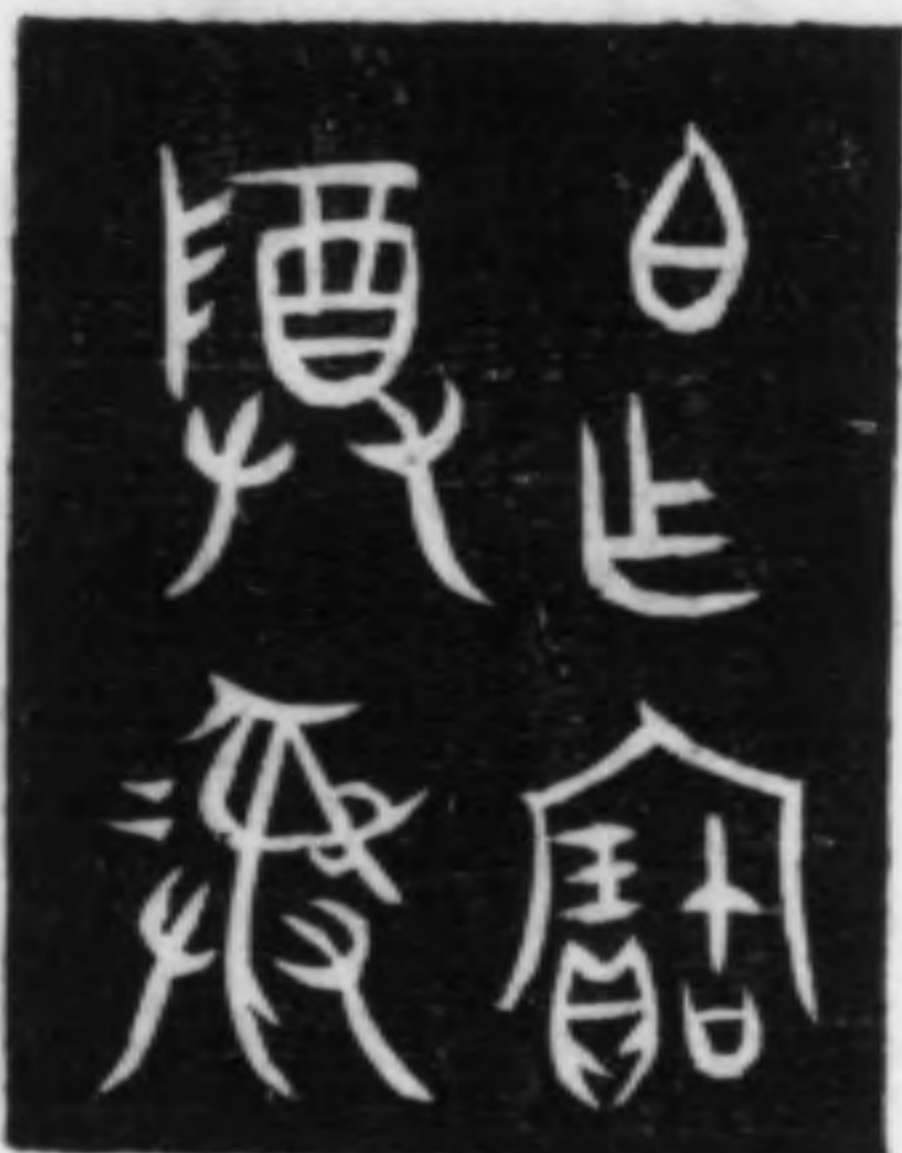 白乍寶
尊彝